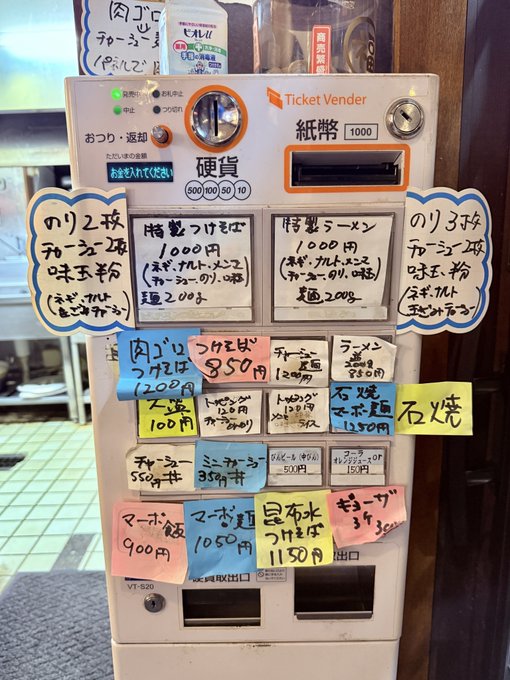 肉ゴロ
チャーシュー麺
パネルで
ビオレu
手指の消毒液
商売繁盛
発売中
お札中止
中止
つり切れ
Ticket Vender
おつり・返却
紙幣
1000
ただいまの金額
お金を入れてください
硬貨
500 100 50 10
のり2枚
チャーシュー2枚
味玉
(ネギ、ナルト
特製つけそば
1000円
(ネギ、ナルト、メンマ
チャーシュー、のり、味玉)
麺200g
特製ラーメン
1000円
(ネギ、ナルト、メンマ
チャーシュー、のり、味玉)
麺200g
のり3枚
チャーシュー2枚
味玉
(ネギ、ナルト
肉ゴロ
つけそば
1200円
つけそば
850円
チャーシュー
麺
1200円
ラーメン
200g
850円
大盛
100円
トッピング
120円
チャーシュー
トッピング
120円
ライス
石焼
マーボー麺
1250円
石焼
チャーシュー
550円 丼
ミニチャーシュー
350円 丼
びんビール(中びん)
500円
コーラ or
オレンジジュース
150円
マーボ飯
900円
マーボ麺
1050円
昆布水
つけそば
1150円
ギョーザ
3ケ
VT-S20
硬貨取出口
取出口